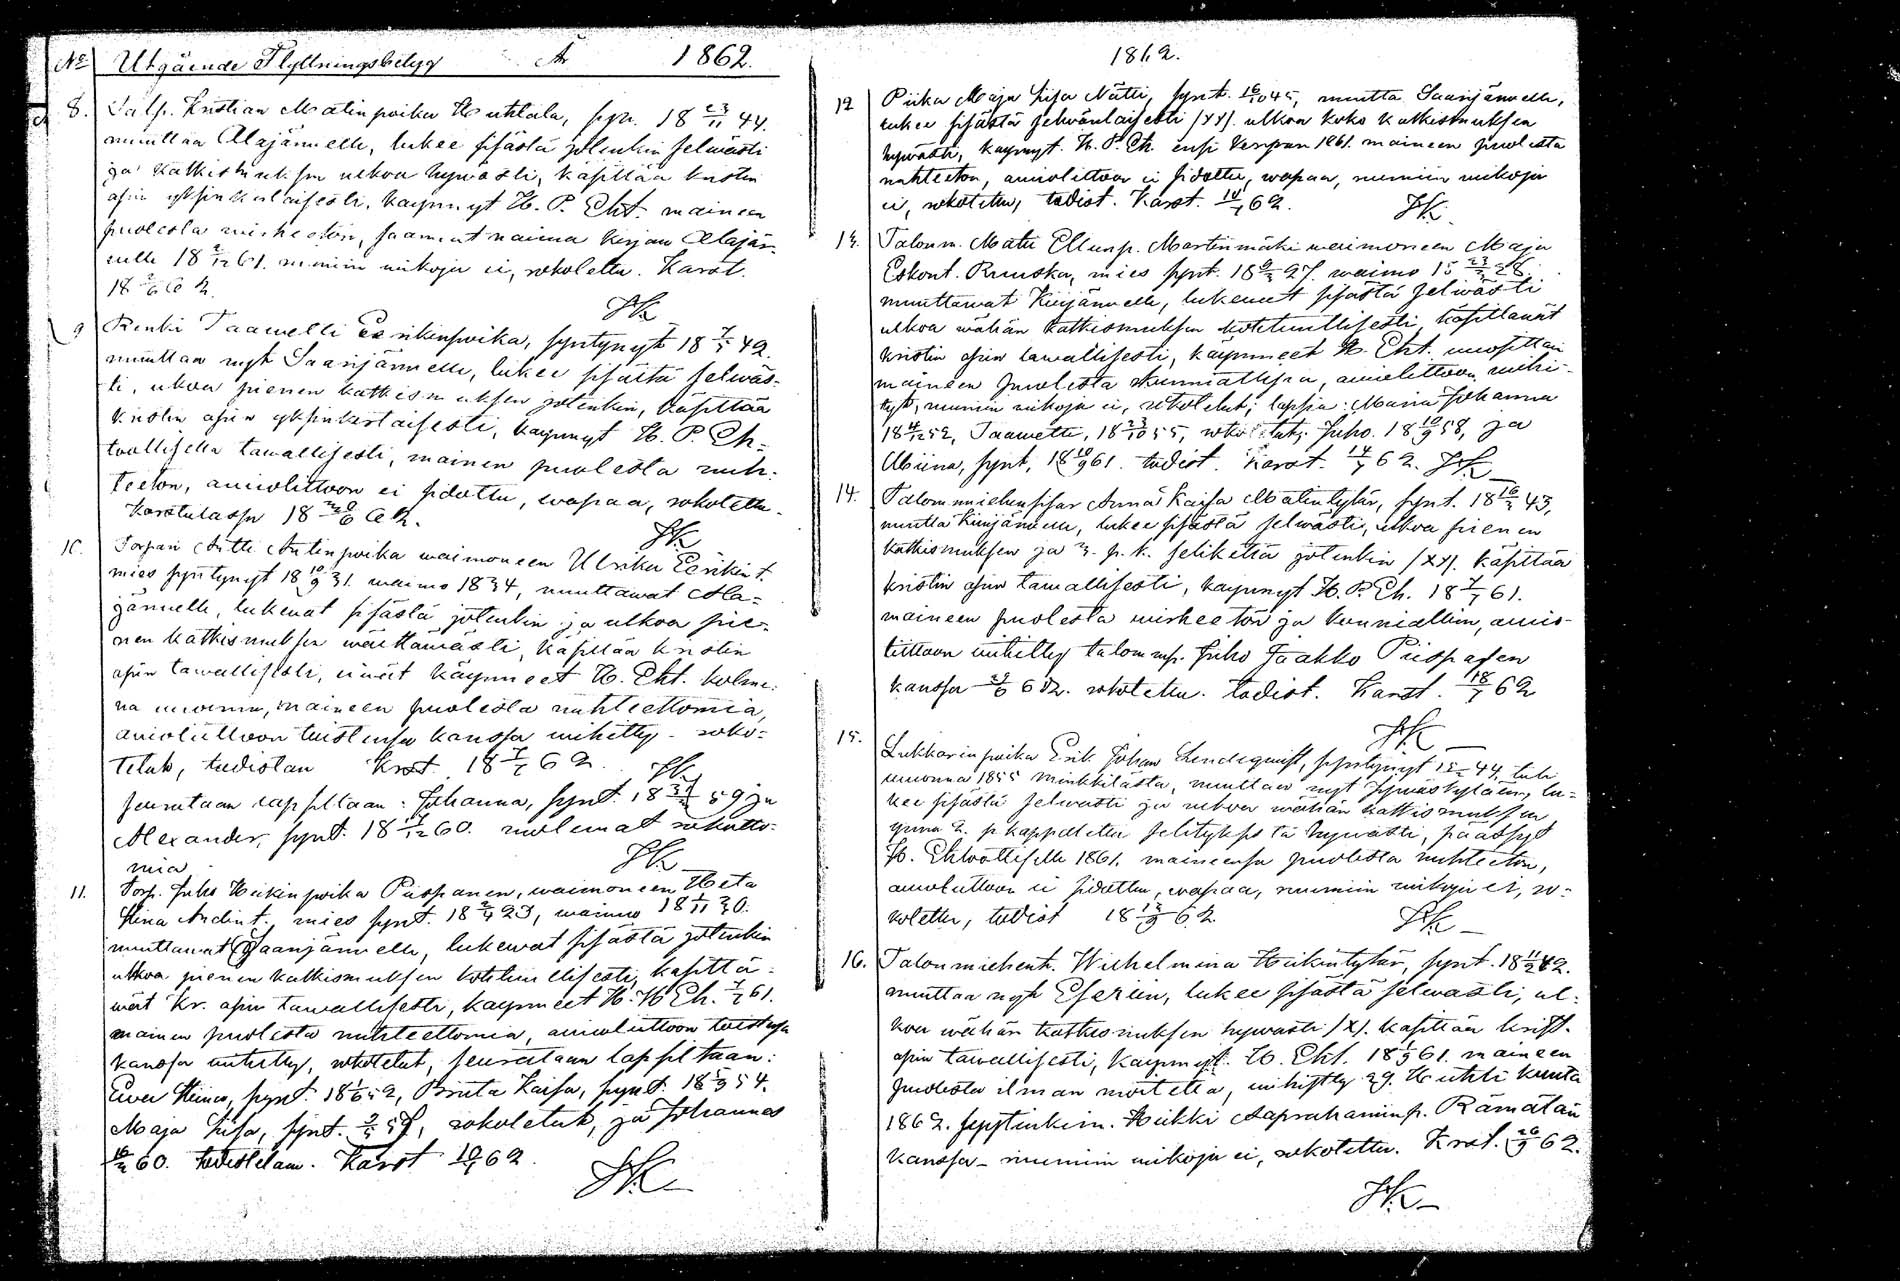 No Utgående Flyttningsbetyg År 1862.
8. Talp. Kristian Matinpoika Huhtala, syn. 18 23/11 44.
muuttaa Alajärwelle, lukee sisästä jotenkin selwästi
ja katkismuksen ulkoa hywästi, käsittää kristin
opin yksinkertaisesti, käynnyt H. P. Eht. maineen
puolesta wirheetön, saanut naima kirjan Alajär-
welle 18 2/12 61. ruumiin wikoja ei, rokotettu. Karst.
18 2/6 62.
JK
9 Renki Taawetti Eerikinpoika, syntynyt 18 7/5 42.
muuttaa nyt Saarijärwelle, lukee sisältä selwäs-
ti, ulkoa pienen katkismuksen jotenkin, käsittää
kristin opin yksinkertaisesti, käynnyt H. P. Eh-
toollisella tawallisesti, mainen puolesta nuh-
teeton, awioliittoon ei sidottu, wapaa, rokotettu.
Karstulassa 18 20/6 62.
JK
10. Torpari Antti Antinpoika waimoneen Ulrika Eerikint.
mies syntynyt 18 10/9 31. waimo 1834, muuttawat Ala-
järwelle, lukewat sisästä jotenkin ja ulkoa pie-
nen katkismuksen wälttäwästi, käsittää kristin
opin tawallisesti, owat käynneet H. Eht. kolme-
na wuonna, maineen puolesta nuhteettomia,
awioliittoon toistensa kanssa wihitty - roko-
tetut, todistan Krst. 18 7/7 62.
JK
seurataan lapsiltaan: Johanna, synt. 18 31/3 59 ja
Alexander, synt. 18 17/12 60. molemat rokotto-
mia
JK
11. Torp. Juho Heikinpoika Piispanen, waimoneen Heta
Stina Andint. mies synt. 18 2/4 23, waimo 18 1/11 20.
muuttawat Saarijärwelle, lukewat sisästä jotenkin
ulkoa pienen katkismuksen kohtuullisesti, käsittä-
wät kr. opin tawallisesti, käynneet H. H. Eh. 7/7 61.
mainen puolesta nuhteettomia, awioliittoon toistensa
kanssa wihitty, rokotetut, seurataan lapsiltaan:
Ewa Stina, synt. 18 1/6 52, Briita Kaisa, synt. 18 5/9 54.
Maja Lisa, synt. 2/5 57, rokotetut, ja Johannes
16/2 60. todistetaan. Karst 10/7 62.
JK
1862.
12 Piika Maja Lisa Nätti, synt. 16/10 45, muutta Saarijärwelle,
lukee sisästä selwänlaisesti (XX). ulkoa koko katkismuksen
hywästi, käynnyt. H. P. Eh. ensi kerran 1861. maineen puolesta
nuhteeton, awioliittoon ei sidottu, wapaa, ruumiin wikoja
ei, rokotettu, todist. Karst. 10/7 62.
JK
13. Talonm. Matti Ellunp. Martinmäki waimoneen Maja
Eskont. Ruuska, mies synt. 18 6/3 27 waimo 18 23/3 28.
muuttawat Kiwijärwelle, lukewat sisästä selwästi
ulkoa wähän katkismuksen kohtuullisesti käsittäwät
kristin opin tawallisesti, käynneet H. Eht. wuosittain
maineen puolesta kunniallisia, awioliittoon wihi-
tyt, ruumiin wikoja ei, rokotetut; lapsia: Maria Johanna
18 4/12 52, Taawetti, 18 23/10 55, rokotetut; Juho. 18 10/9 58, ja
Miina, synt, 18 10/9 61. todist. Karst. 14/7 62. JK
14. Talonmiehensisar Anna Kaisa Matintytär, synt. 18 16/3 43,
muutta Kiwijärwelle, lukee sisästä selwästi, ulkoa pienen
katkismuksen ja 3. p. k. selikettä jotenkin (XX). käsittää
kristin opin tawallisesti, käynnyt H. P. Eh. 18 7/7 61.
maineen puolesta wirheetön ja kunniallinen, awio-
liittoon wihitty talonmp. Juho Jaakko Piispasen
kanssa 29/6 62. rokotettu. todist. Karst. 18/7 62
JK
15. Lukkarinpoika Erik Johan Lindeqwist, syntynyt 44, tuli
wuonna 1855 minkkilästä, muuttaa nyt Jywäskylään, lu-
kee sisästä selwästi ja ulkoa wähän katkismuksen
ynnä 2. p. kappaletten selityksestä hywästi, päässyt
H. Ehtoolliselle 1861. maineensa puolesta nuhteeton,
awioliittoon ei sidottu, wapaa, ruumiin wikoja ei, ro-
kotettu, todist 18 13/9 62.
JK
16. Talonmiehent. Wilhelmina Heikintytär, synt. 18 11/2 42.
muuttaa nyt Eseriin, lukee sisästä selwästi, ul-
koa wähän katkismuksen hywästi (X). käsittää krist.
opin tawallisesti, käynnyt. H. Eht. 18 1/9 61. maineen
puolesta ilman moitetta, wihitty 29. Huhti kuuta
1862. Heikki Aaprahaminp. Rämälän
kanssa - ruumiin wikoja ei, rokotettu. Krst. 26/9 62.
JK